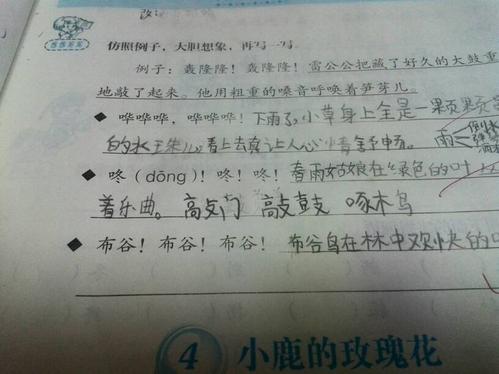 改：
仿照例子，大胆想象，再写一写。
例子：轰隆隆！轰隆隆！雷公公把藏了好久的大鼓重
地敲了起来。他用粗重的嗓音呼唤着笋芽儿。
◆ 哗哗哗，哗哗哗！下雨了，小草身上全是一果页果页
的水玉朱儿，看上去真让人心情舒畅。 雨
◆ 咚（dōng）！咚！咚！春雨姑娘在绿色的叶上
着乐曲。 高攴门 高攴鼓 啄木鸟
◆ 布谷！布谷！布谷！布谷鸟在林中欢快的
4 小鹿的玫瑰花